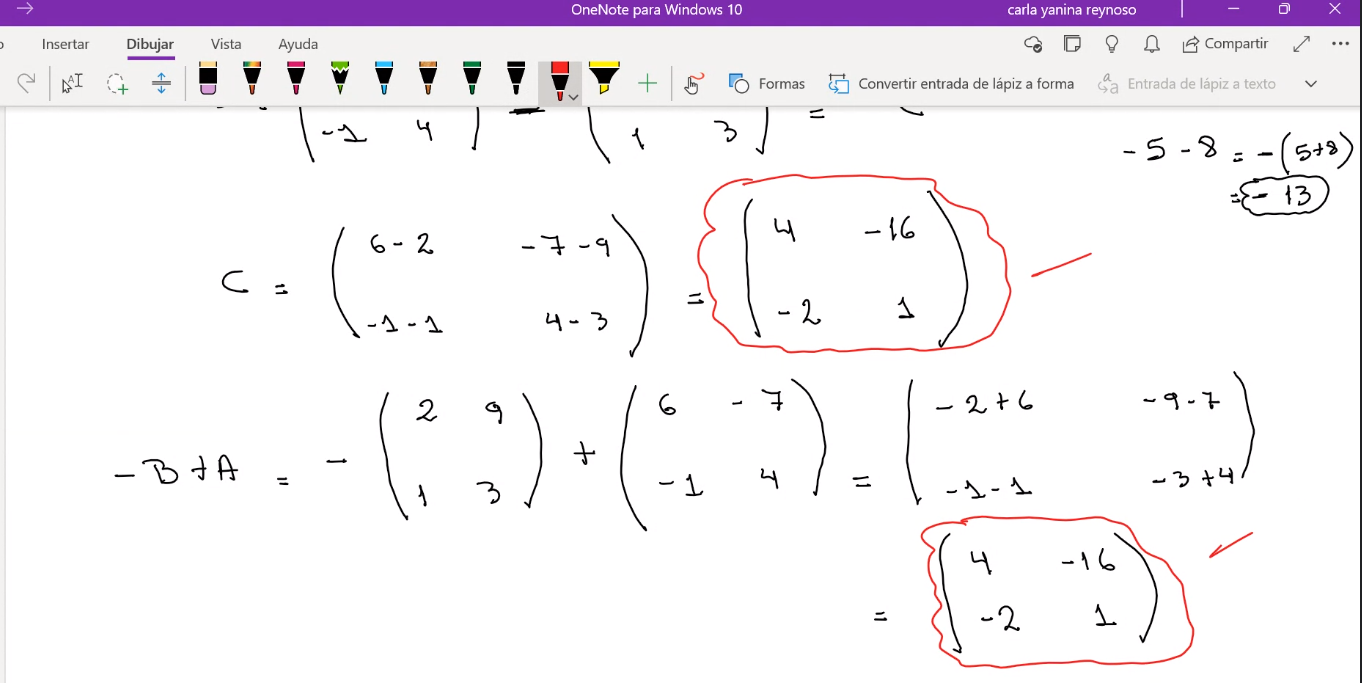 OneNote para Windows 10 carla yanina reynoso
Insertar Dibujar Vista Ayuda Compartir
Formas Convertir entrada de lápiz a forma Entrada de lápiz a texto
-1 4 1 3 =
-5 - 8 = -(5+8)
= -13
C = ( 6-2 -7-9 ) = ( 4 -16 )
-1-1 4-3 -2 1
-B+A = - ( 2 9 ) + ( 6 -7 ) = ( -2+6 -9-7 )
1 3 -1 4 -1-1 -3+4
= ( 4 -16 )
-2 1